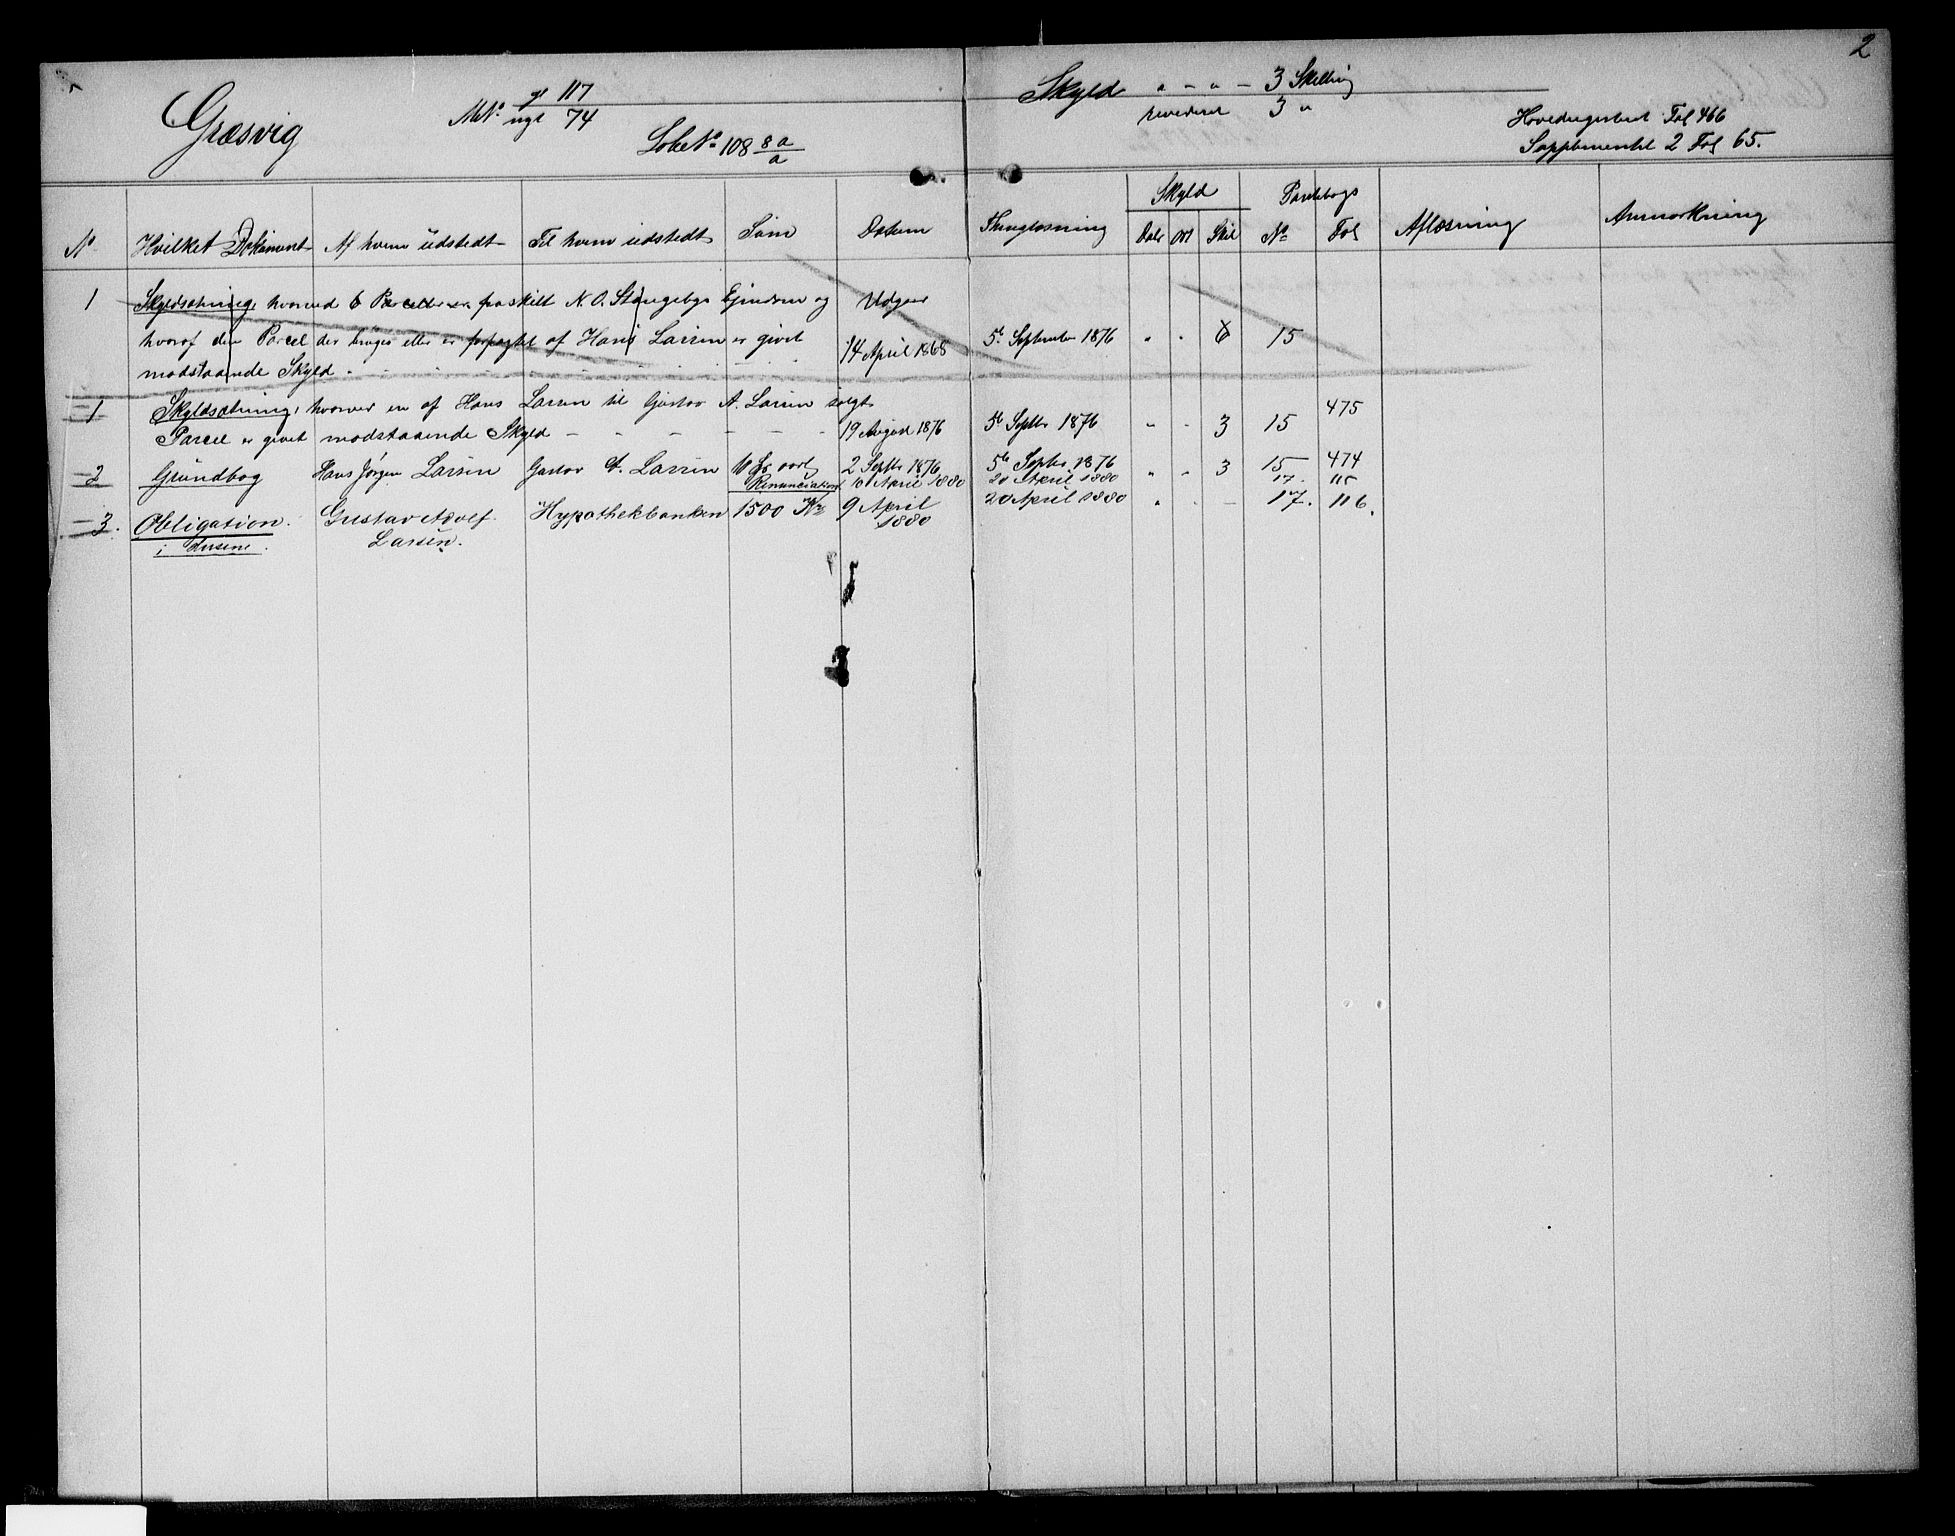 2
Græsvig
MNo gl 117
nyt 74
LøbeNo 108 8 a
a
Skyld " - " - 3 Skilling
revideret 3 "
Hovedregisteret Fol 466
Supplementet 2 Fol 65.
No Hvilket Dokument Af hvem udstedt Til hvem udstedt Sum Datum Thinglæsning Skyld Pantebogs Aflæsning Anmærkning
Daler Ort Skil No Fol
1 Skyldsætning, hvorved 6 Parceller er fraskilt N. O. Stangebys Ejendom og Udgaar
hvoraf den Parcel der bruges eller er forpagtet af Hans Larsen er givet 14 April 1868 5te September 1876 " " 6 15
modstaaende Skyld
1 Skyldsætning, hvorved en af Hans Larsen til Gustav A. Larsen solgt 475
Parcel er givet modstaaende Skyld - - - - - - 19 August 1876 5te Septbr 1876 " " 3 15
2 Grundbog Hans Jørgen Larsen Gustav A. Larsen 2 Septbr 1876 5te Septbr 1876 " " 3 15 474
Renunciation 10 April 1880 20 April 1880 17. 115
3. Obligation Gustav Adolf Hypothekbanken 1500 Kr 9 April 20 April 1880 " " - 17. 116.
Larsen. 1880